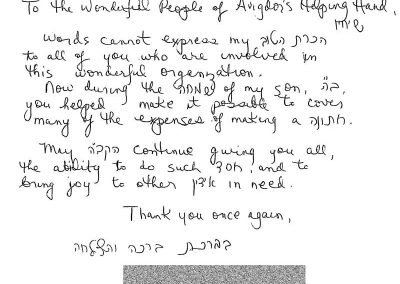 To the Wonderful People of Avigdor's Helping Hand,
שיחיו
Words cannot express my הכרת הטוב
to all of you who are involved in
this wonderful organzation.
Now during the שמחה of my son, ב"ה,
you helped make it possible to cover
many of the expenses of making a חתונה.
May הקב"ה continue giving you all,
the ability to do such חסד, and to
bring joy to other אידן in need.
Thank you once again,
בברכת ברכה והצלחה